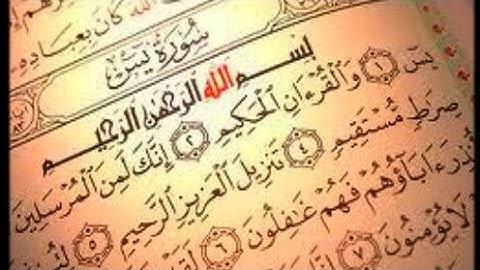 ٱللَّهَ كَانَ بِعِبَادِهِۦ
سُورَةُ يسٓ
بِسْمِ ٱللَّهِ ٱلرَّحْمَٰنِ ٱلرَّحِيمِ
يسٓ ١ وَٱلْقُرْءَانِ ٱلْحَكِيمِ ٢ إِنَّكَ لَمِنَ ٱلْمُرْسَلِينَ
صِرَٰطٍ مُّسْتَقِيمٍ ٤ تَنزِيلَ ٱلْعَزِيزِ ٱلرَّحِيمِ ٥
ءَابَآؤُهُمْ فَهُمْ غَٰفِلُونَ ٦ لَقَدْ
لَا يُؤْمِنُونَ ٧ إِنَّا